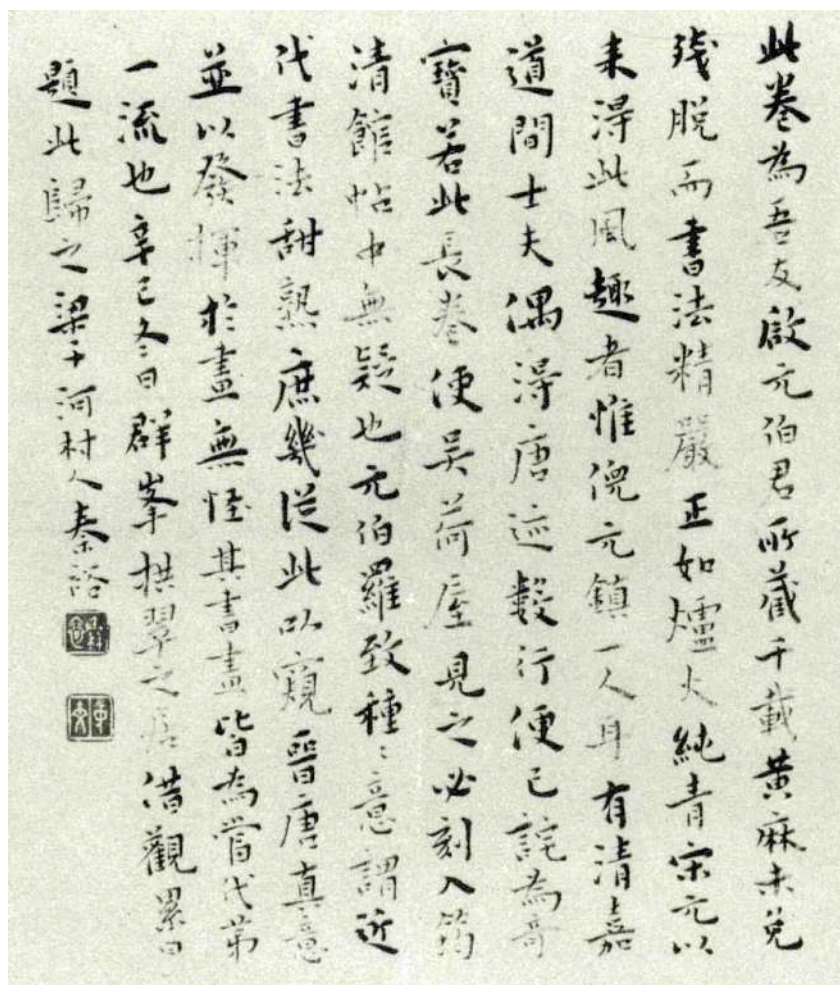 此卷為吾友啟元伯君所藏千載黃麻未免
殘脫而書法精嚴正如爐火純青宋元以
來得此風趣者惟倪元鎮一人耳有清嘉
道間士夫偶得唐迹數行便已詫為奇
寶若此長卷使吳荷屋見之必刻入筠
清館帖中無疑也元伯羅致種〻意謂近
代書法甜熟庶幾從此以窺晉唐真意
並以發揮於畫無怪其書畫皆為當代第
一流也辛巳冬日群峯拱翠之居借觀累日
題此歸之梁子河村人秦裕